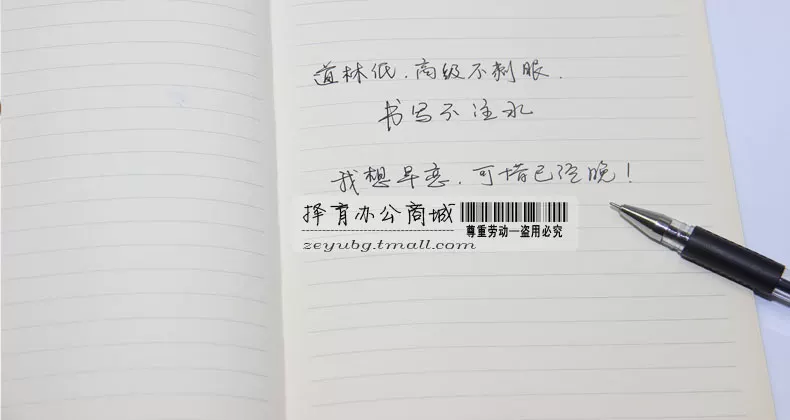 道林低.高级不刺眼.
书写不洼水
我想早恋.可惜已经晚!
择育办公商城
尊重劳动—盗用必究
zeyubg.tmall.com